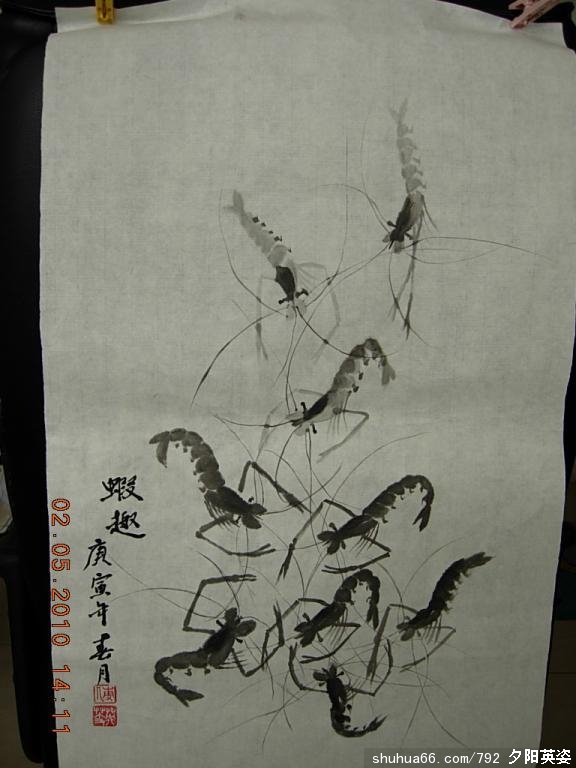 蝦趣
庚寅年春月
02.05.2010 14:11
shuhua66.com/792 夕阳英姿